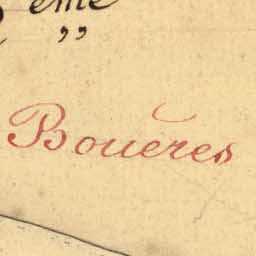 ème
Bouères